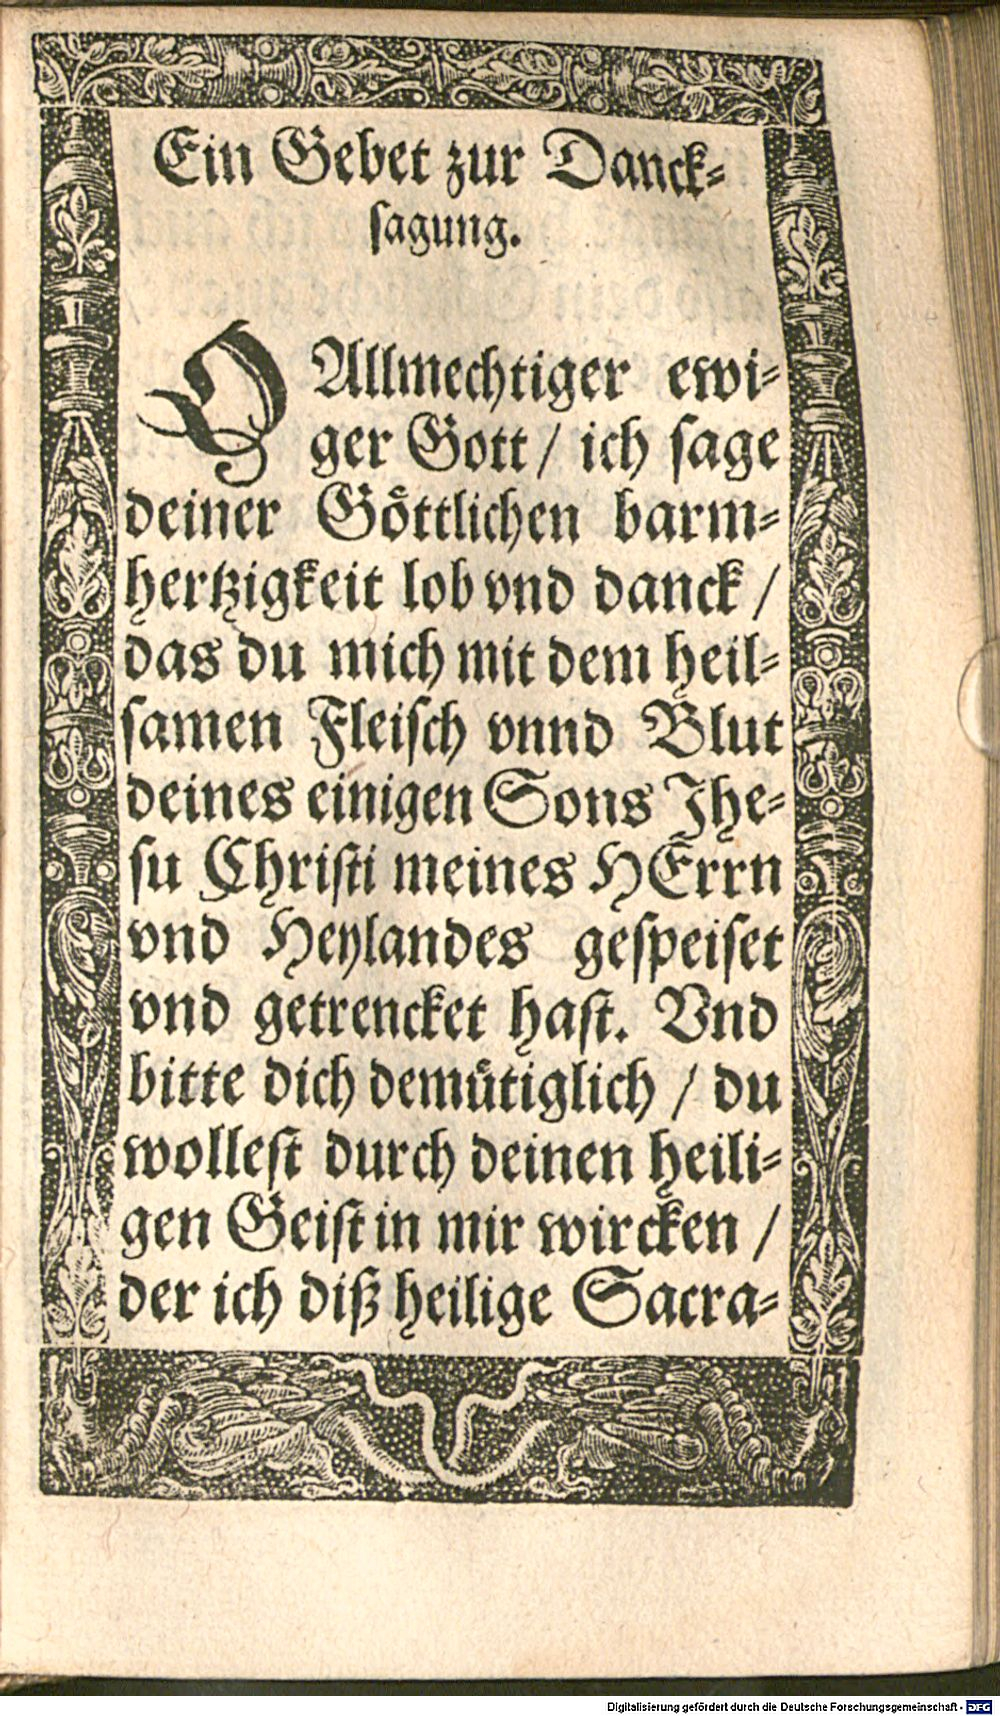 Ein Gebet zur Danck-
ſagung.
O Allmechtiger ewi-
ger Gott / ich ſage
deiner Göttlichen barm-
hertzigkeit lob vnd danck /
das du mich mit dem heil-
ſamen Fleiſch vnnd Blut
deines einigen Sons Jhe-
ſu Chriſti meines HErrn
vnd Heylandes geſpeiſet
vnd getrencket haſt. Vnd
bitte dich demütiglich / du
wolleſt durch deinen heili-
gen Geiſt in mir wircken /
der ich diß heilige Sacra-
Digitalisierung gefördert durch die Deutsche Forschungsgemeinschaft - DFG